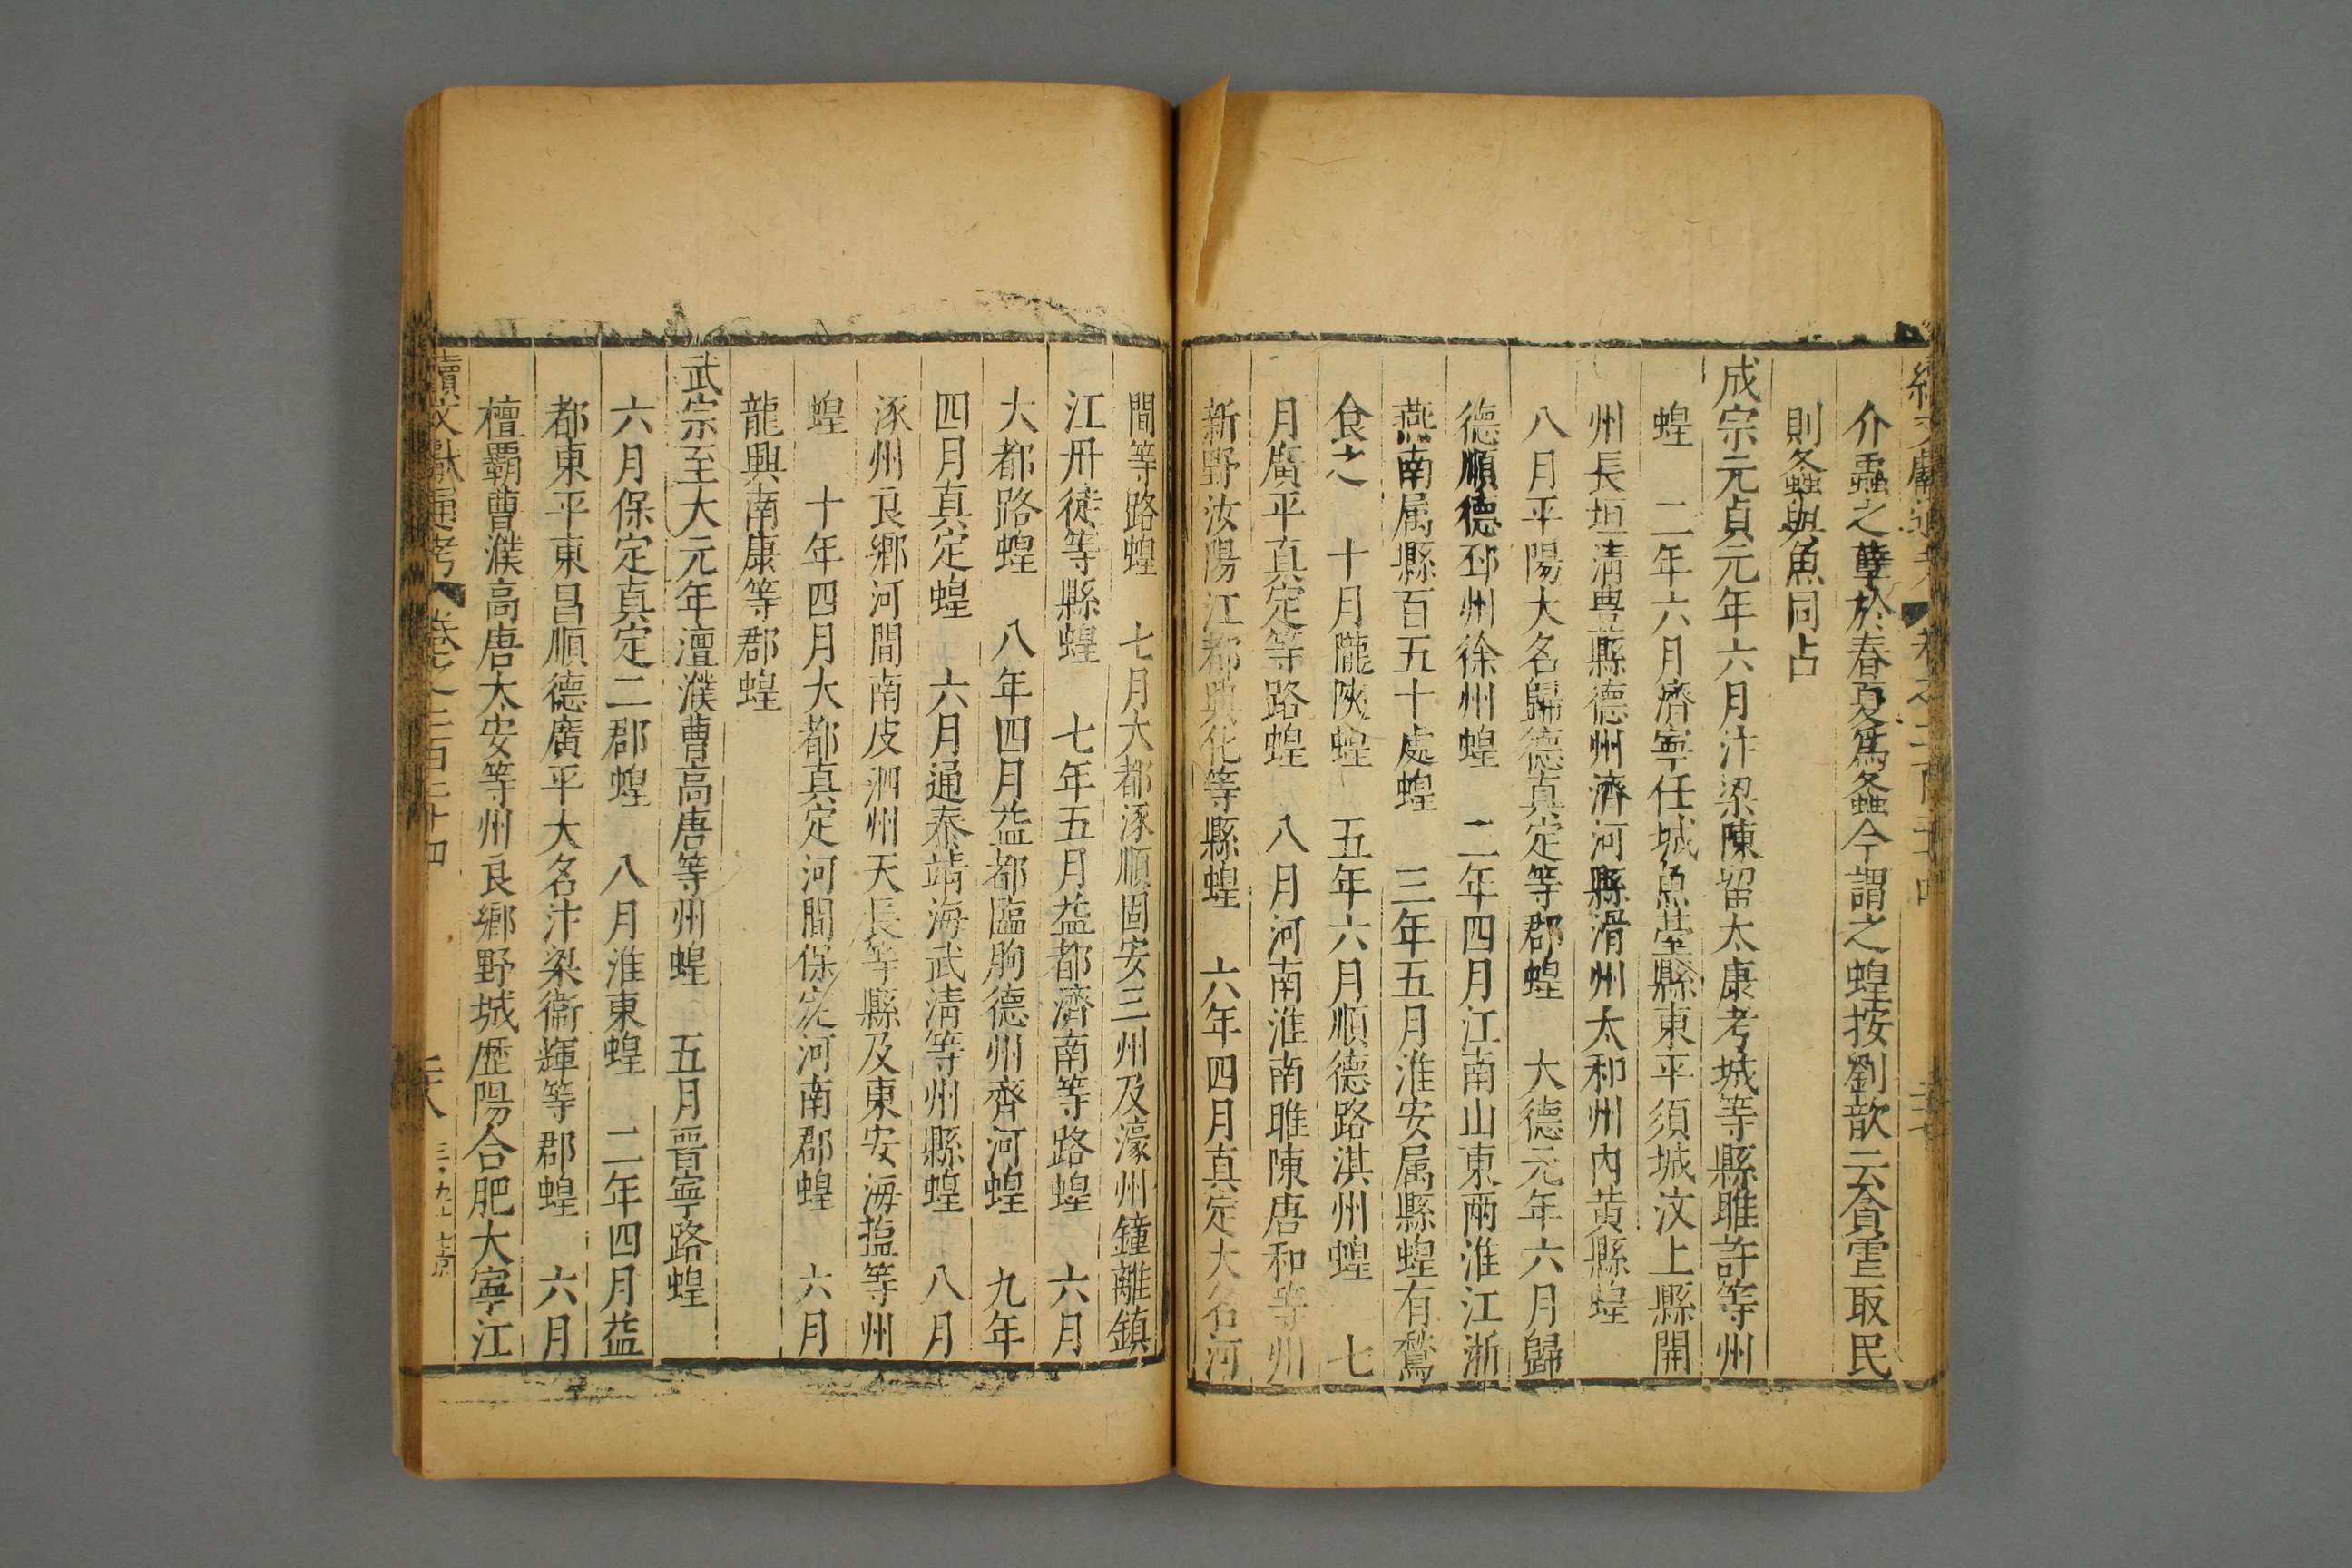 介蟲之孽於春夏爲螽今謂之蝗按劉歆云貪虐取民
則螽與魚同占
成宗元貞元年六月汴梁陳留太康考城等縣睢許等州
蝗　二年六月濟寧任城魚臺縣東平須城汶上縣開
州長垣清豊縣德州濟河縣滑州太和州内黄縣蝗
八月平陽大名歸德真定等郡蝗　大德元年六月歸
德順德邳州徐州蝗　二年四月江南山東兩淮江浙
燕南属縣百五十處蝗　三年五月淮安属縣蝗有鶖
食之　十月隴陜蝗　五年六月順德路淇州蝗　七
月廣平真定等路蝗　八月河南淮南睢陳唐和等州
新野汝陽江都興化等縣蝗　六年四月真定大名河
間等路蝗　七月大都涿順固安三州及濠州鐘離鎮
江丹徒等縣蝗　七年五月益都濟南等路蝗　六月
大都路蝗　八年四月益都臨朐德州齊河蝗　九年
四月真定蝗　六月通泰靖海武清等州縣蝗　八月
涿州良鄉河間南皮泗州天長等縣及東安海盐等州
蝗　十年四月大都真定河間保定河南郡蝗　六月
龍興南康等郡蝗
武宗至大元年澶濮曹高唐等州蝗　五月晉寧路蝗
六月保定真定二郡蝗　八月淮東蝗　二年四月益
都東平東昌順德廣平大名汴梁衞輝等郡蝗　六月
檀覇曹濮高唐太安等州良鄉野城歴陽合肥大寧江
續文獻通考　卷之二百二十四